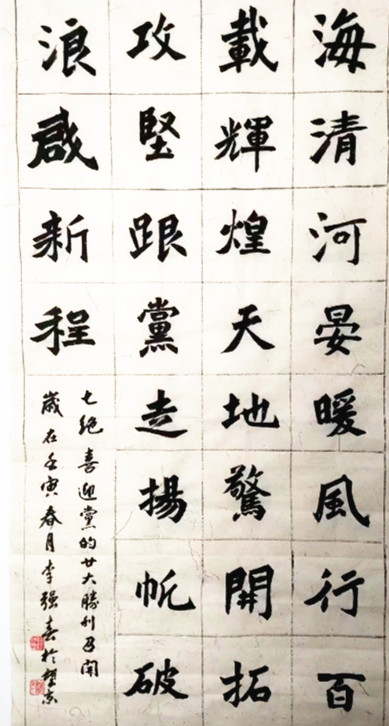 海清河晏暖風行百
載輝煌天地驚開拓
攻堅跟黨走揚帆破
浪啟新程
七絕喜迎黨的廿大勝利召開
歲在壬寅春月李强書於望京